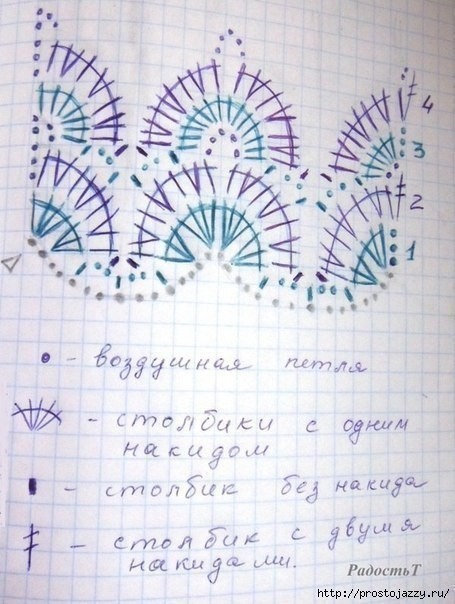 4
3
2
1
- воздушная петля
- столбики с одним
накидом
- столбик без накида
- столбик с двумя
накидами.
РадостьТ
http://prostojazzy.ru/